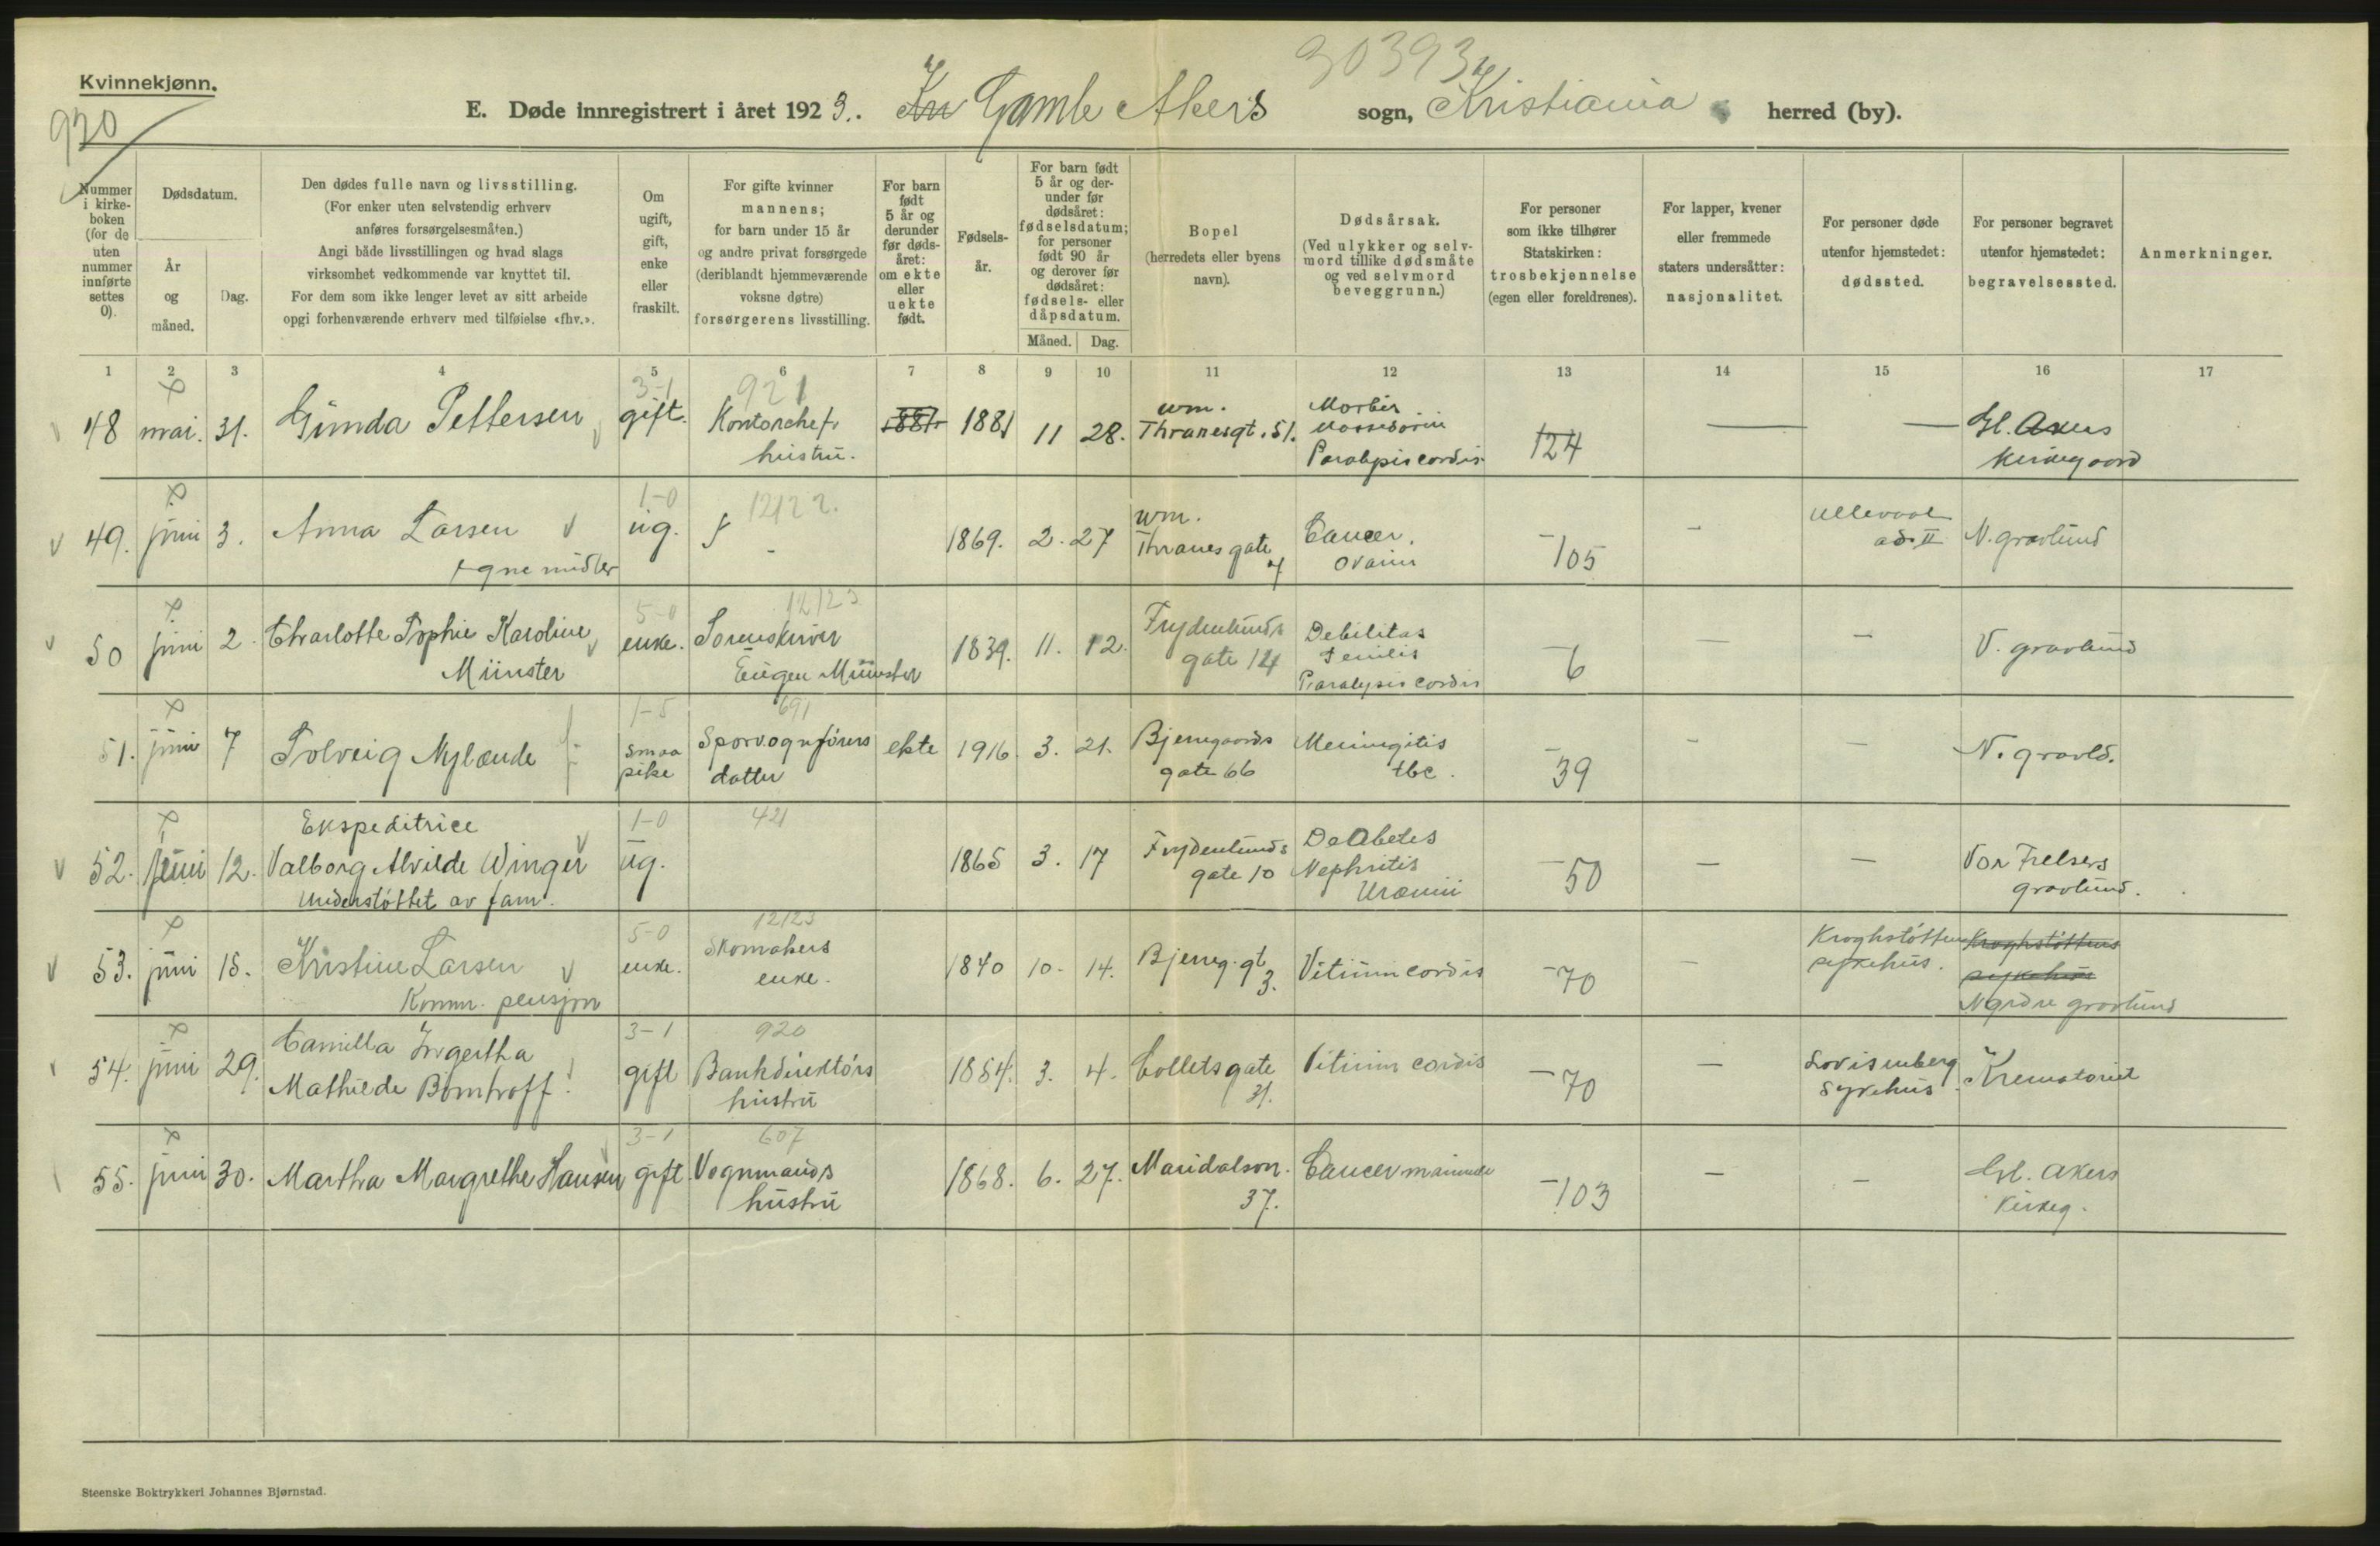 Kvinnekjønn.
930
30393
E. Døde innregistrert i året 1923. Gamle Akers sogn, Kristiania herred (by).
Nummer i kirkeboken (for de uten nummer innførte settes 0).
Dødsdatum.
År og måned.
Dag.
Den dødes fulle navn og livsstilling.
(For enker uten selvstendig erhverv
anføres forsørgelsesmåten.)
Angi både livsstillingen og hvad slags
virksomhet vedkommende var knyttet til.
For dem som ikke lenger levet av sitt arbeide
opgi forhenværende erhverv med tilføielse «fhv.».
Om ugift, gift, enke eller fraskilt.
For gifte kvinner
mannens;
for barn under 15 år
og andre privat forsørgede
(deriblandt hjemmeværende
voksne døtre)
forsørgerens livsstilling.
For barn født 5 år og derunder før dødsåret: om ekte eller uekte født.
Fødselsår.
For barn født 5 år og derunder før dødsåret: fødselsdatum; for personer født 90 år og derover før dødsåret: fødsels- eller dåpsdatum.
Måned. Dag.
Bopel
(herredets eller byens
navn).
Dødsårsak.
(Ved ulykker og selvmord tillike dødsmåte og ved selvmord beveggrunn.)
For personer
som ikke tilhører
Statskirken:
trosbekjennelse
(egen eller foreldrenes).
For lapper, kvener
eller fremmede
staters undersåtter:
nasjonalitet.
For personer døde
utenfor hjemstedet:
dødssted.
For personer begravet
utenfor hjemstedet:
begravelsessted.
Anmerkninger.
1 2 3 4 5 6 7 8 9 10 11 12 13 14 15 16 17
3-1 921
48 mai. 31. Gunda Pettersen gift. Kontorchefs hustru. 1881 1881 11 28. wm. Thranesgt. 51. Morbus Paralysis cordis 124 — — Gl. Akers kirkegaard
1-0 12122.
49. juni 3. Anna Larsen egne midler ug. - 1869. 2. 27 wm. Thranes gate 7 Cancer. ovarii 105 - Ullevaal ad. II N. gravlund
5-0 12123
50 juni 2. Charlotte Sophie Karoline Münster enke. Sorenskriver Eugen Münster 1839. 11. 12. Frydenlunds gate 14 Debilitas senilis Paralysis cordis 6 — — V. gravlund
1-5 691
51. juni 7 Solveig Nylænde smaa pike Sporvognførers datter ekte 1916. 3. 21. Bjerregaards gate 66 Meningitis tbc. 39 - — N. gravld.
1-0 421
52. juni 12. Ekspeditrice Valborg Alvilde Winger Understøttet av fam. ug. 1865 3. 17 Frydenlunds gate 10 Deabetes Nephritis Uræmii 50 — — Vor Frelsers gravlund.
5-0 12123
53. juni 15. Kristine Larsen Komm. pensjon enke. Skomakers enke. 1840 10. 14. Bjerreg. gt 3. Vitium cordis 70 - Kroghstøttens sykehus. Kroghstøttens sykehus Nordre gravlund
3-1 920
54. juni 29. Camilla Ingertha Mathilde Bomhoff gift Bankdirektørs hustru 1854. 3. 4. Collets gate 31. Vitium cordis 70 — Lovisenberg Sykehus. Krematoriet
3-1 607
55. juni 30. Martha Margrethe Hansen gift. Vognmands hustru 1868. 6. 27. Maridalsvn. 37. Cancer mammae 103 - - Gl. Akers kirkeg.
Steenske Boktrykkeri Johannes Bjørnstad.